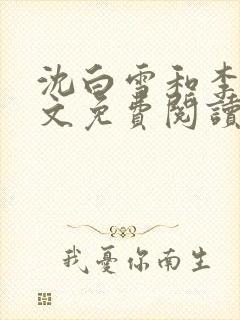 沈白雪和李
文免費閱讀
我憂你南生